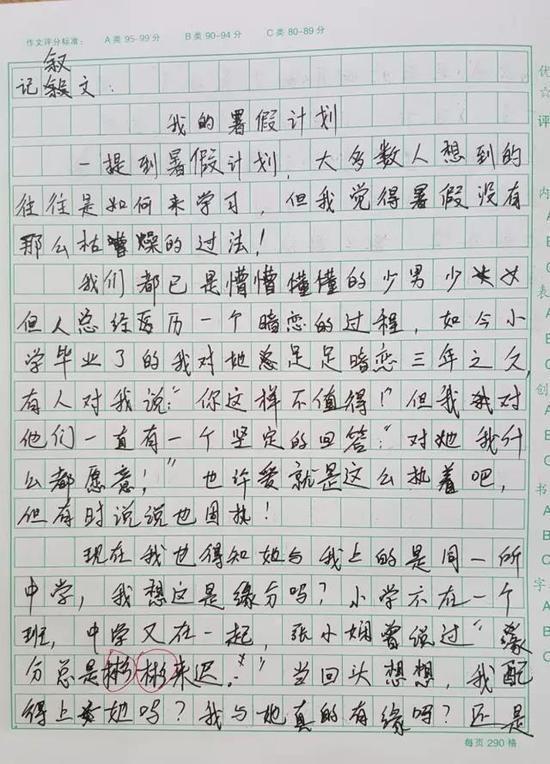 作文评分标准： A类95-99分 B类90-94分 C类80-89分
叙
记文：
我的暑假计划
一提到暑假计划，大多数人想到的
往往是如何来学习，但我觉得暑假没有
那么枯燥的过法！
我们都已是懵懵懂懂的少男少女
但人总经历一个暗恋的过程，如今小
学毕业了的我对她足足暗恋三年之久，
有人对我说：“你这样不值得！”但我对
他们一直有一个坚定的回答：“对她我什
么都愿意！”也许爱就是这么执着吧，
但有时说说也固执！
现在我也得知她与我上的是同一所
中学，我想这是缘分吗？小学不在一个
班，中学又在一起，张小娴曾说过“缘
分总是彬彬来迟。”当回头想想，我配
得上她吗？我与她真的有缘吗？还是
每页290格
优
☆
评
内
A
B
C
表
A
B
C
创
A
B
C
书
A
B
C
字
A
B
C